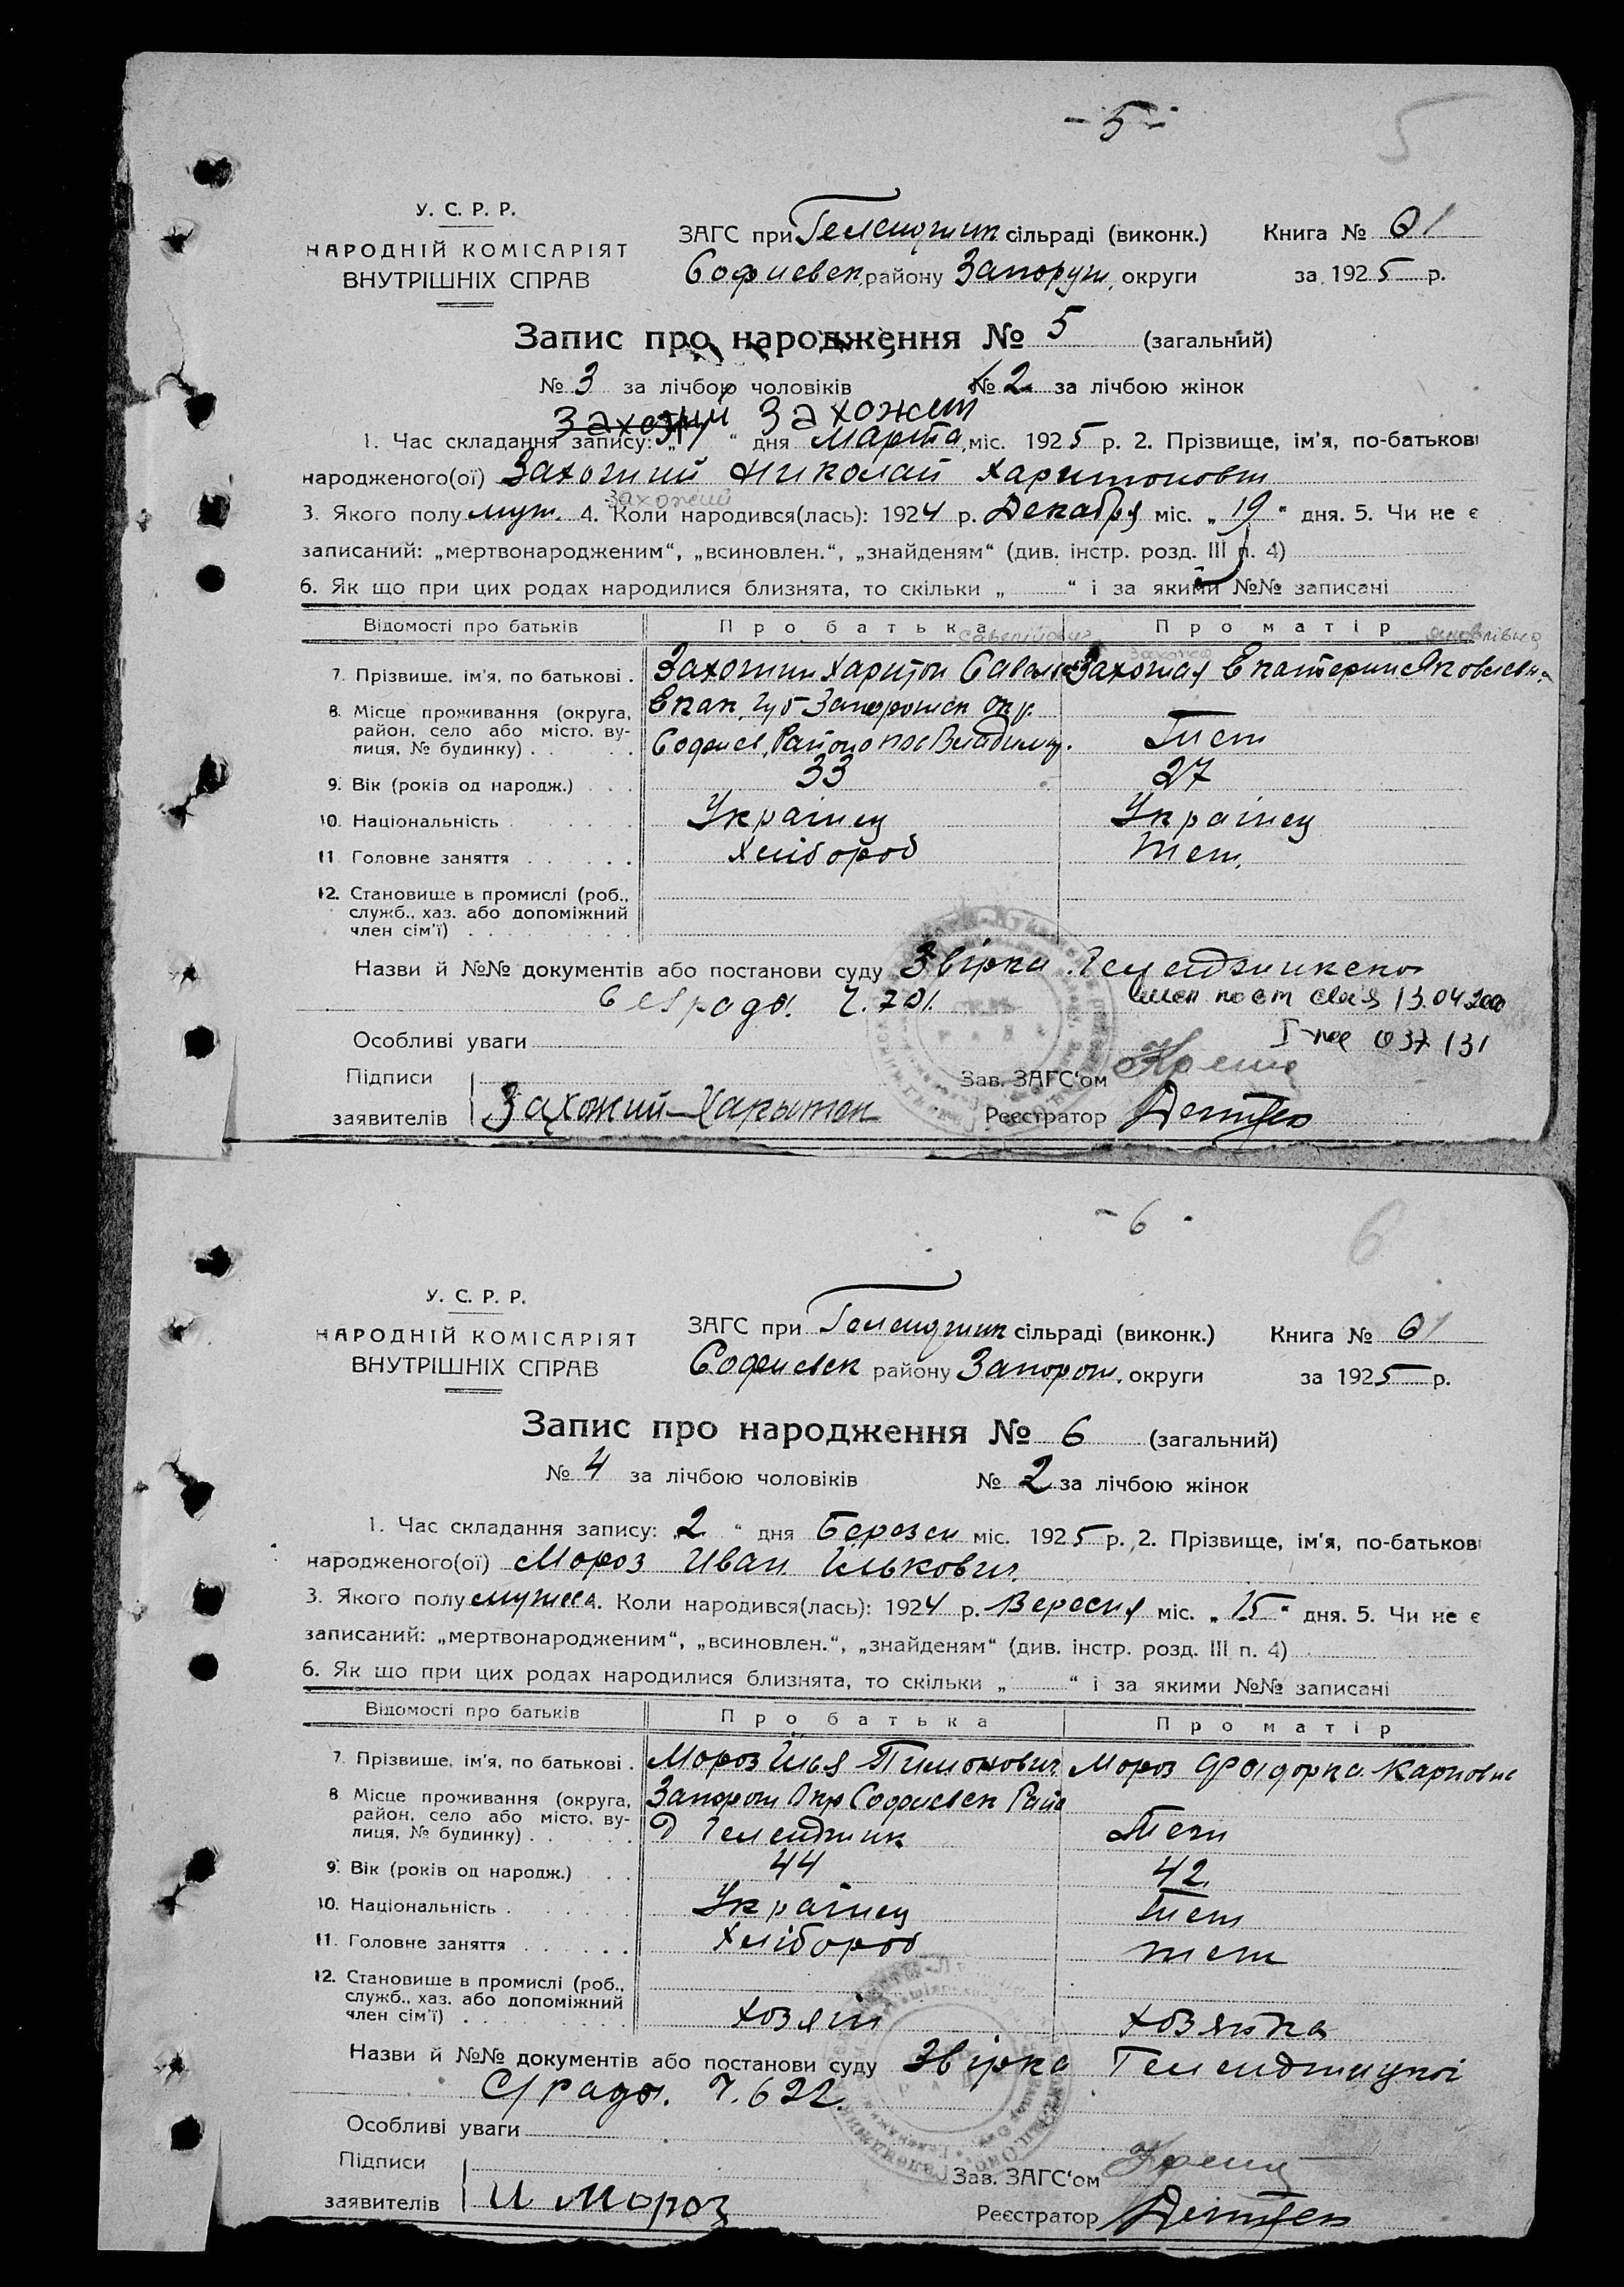 - 5 -
5
У. С. Р. Р.
НАРОДНІЙ КОМІСАРІЯТ
ВНУТРІШНІХ СПРАВ
ЗАГС при Геленджик сільраді (виконк.) Книга № 01
Софиевск. району Запорож. округи за 1925 р.
Запис про народження № 5 (загальний)
№ 3 за лічбою чоловіків № 2 за лічбою жінок
Захожий Захожет
1. Час складання запису: „ “ дня Марта міс. 1925 р. 2. Прізвище, ім'я, по-батькові
народженого(ої) Захожий Николай Харитонович
Захожий
3. Якого полу муж. 4. Коли народився(лась): 1924 р. Декабря міс. „ 19 “ дня. 5. Чи не є
записаний: „мертвонародженим“, „всиновлен.“, „знайденям“ (див. інстр. розд. III п. 4)
6. Як що при цих родах народилися близнята, то скільки „ “ і за якими №№ записані
Відомості про батьків Про батька Про матір
7. Прізвище, ім'я, по батькові . Захожий Харитон Савел Захожая Екатерина Яковлевн.
8. Місце проживання (округа, район, село або місто, вулиця, № будинку) . Екат. Губ Запорожск Окр.
Софиев. Район Владимир. Тет
9. Вік (років од народж.) 33 27
10. Національність Украінец Украінец
11. Головне заняття Хлібороб тет.
12. Становище в промислі (роб., служб., хаз. або допоміжний член сім'ї)
Назви й №№ документів або постанови суду Звірка Геленджикско
сель рада. Ч. 701.
13.04.2000
037131
Особливі уваги
Підписи
заявителів Захожий Харытон
Зав. ЗАГС'ом
Реєстратор
- 6 -
6
У. С. Р. Р.
НАРОДНІЙ КОМІСАРІЯТ
ВНУТРІШНІХ СПРАВ
ЗАГС при Геленджик сільраді (виконк.) Книга № 01
Софиевск району Запорож. округи за 1925 р.
Запис про народження № 6 (загальний)
№ 4 за лічбою чоловіків № 2 за лічбою жінок
1. Час складання запису: 2 “ дня Березеня міс. 1925 р. 2. Прізвище, ім'я, по-батькові
народженого(ої) Мороз Иван Ількович
3. Якого полу мужск. 4. Коли народився(лась): 1924 р. Вересня міс. „ 15 “ дня. 5. Чи не є
записаний: „мертвонародженим“, „всиновлен.“, „знайденям“ (див. інстр. розд. III п. 4)
6. Як що при цих родах народилися близнята, то скільки „ “ і за якими №№ записані
Відомості про батьків Про батька Про матір
7. Прізвище, ім'я, по батькові . Мороз Илья Тимонович Мороз Фадорка Карповна
8. Місце проживання (округа, район, село або місто, вулиця, № будинку) . Запорож Окр Софиевск Район
д Геленджик Тет
9. Вік (років од народж.) 44 42
10. Національність Украінец тет
11. Головне заняття Хлібороб тет
12. Становище в промислі (роб., служб., хаз. або допоміжний член сім'ї) Хозяїн Хозяйка
Назви й №№ документів або постанови суду Звірка Геленджицкої
С/рада. Ч. 622.
Особливі уваги
Підписи
заявителів И Мороз
Зав. ЗАГС'ом
Реєстратор